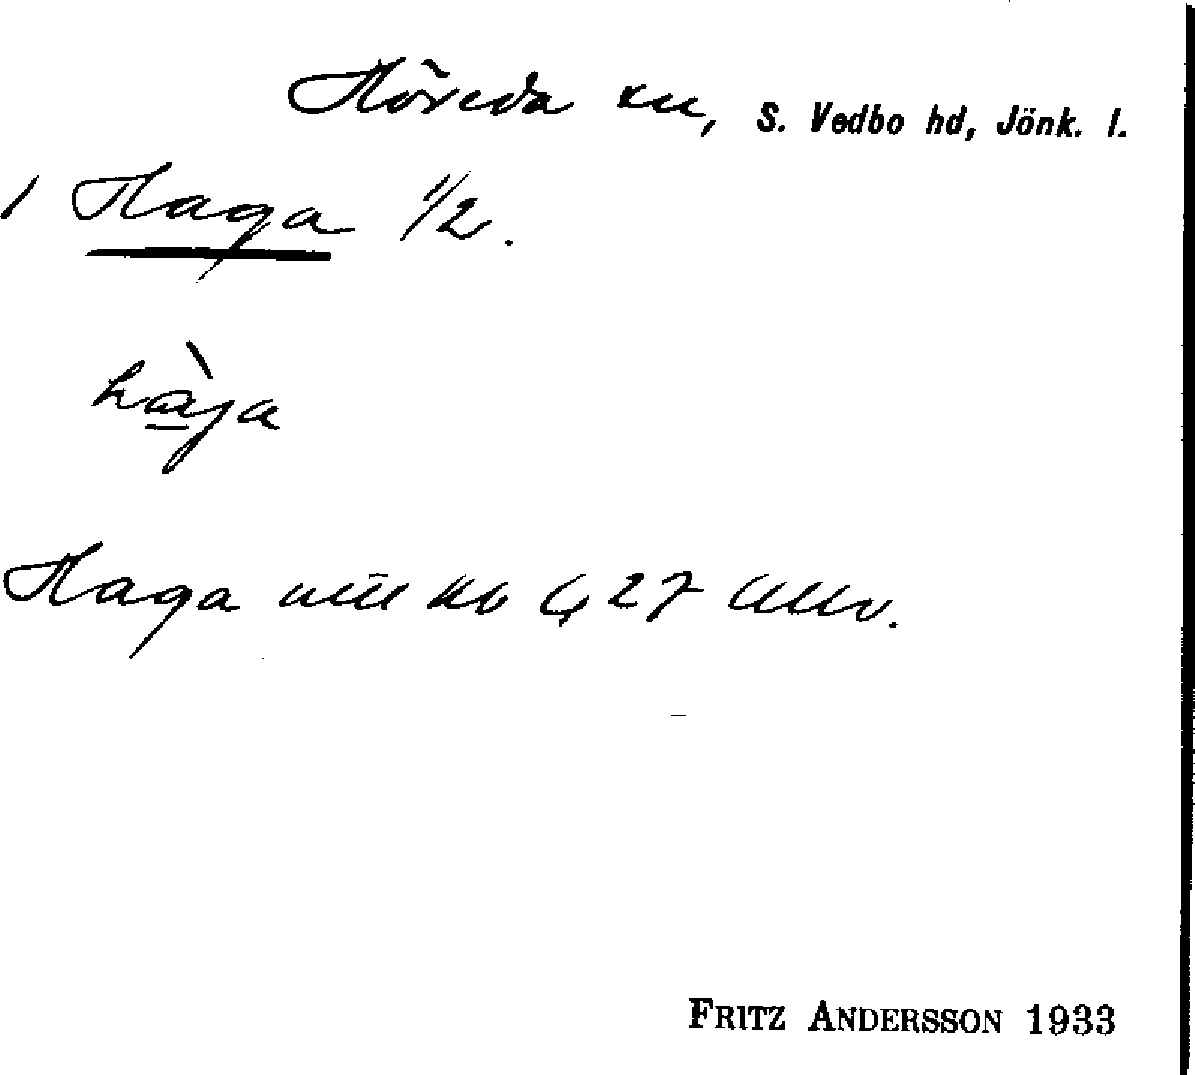 Höreda sn, S. Vedbo hd, Jönk. l.
1 Haga 1/2.
hàga
Haga 27
FRITZ ANDERSSON 1933